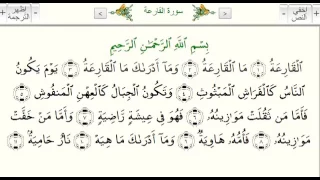 أخفي النص
سورة القارعة
إظهار الترجمة
بِسْمِ اللَّهِ الرَّحْمَٰنِ الرَّحِيمِ
الْقَارِعَةُ ﴿١﴾ مَا الْقَارِعَةُ ﴿٢﴾ وَمَا أَدْرَاكَ مَا الْقَارِعَةُ ﴿٣﴾ يَوْمَ يَكُونُ
النَّاسُ كَالْفَرَاشِ الْمَبْثُوثِ ﴿٤﴾ وَتَكُونُ الْجِبَالُ كَالْعِهْنِ الْمَنفُوشِ ﴿٥﴾
فَأَمَّا مَن ثَقُلَتْ مَوَازِينُهُ ﴿٦﴾ فَهُوَ فِي عِيشَةٍ رَّاضِيَةٍ ﴿٧﴾ وَأَمَّا مَنْ خَفَّتْ
مَوَازِينُهُ ﴿٨﴾ فَأُمُّهُ هَاوِيَةٌ ﴿٩﴾ وَمَا أَدْرَاكَ مَا هِيَهْ ﴿١٠﴾ نَارٌ حَامِيَةٌ ﴿١١﴾